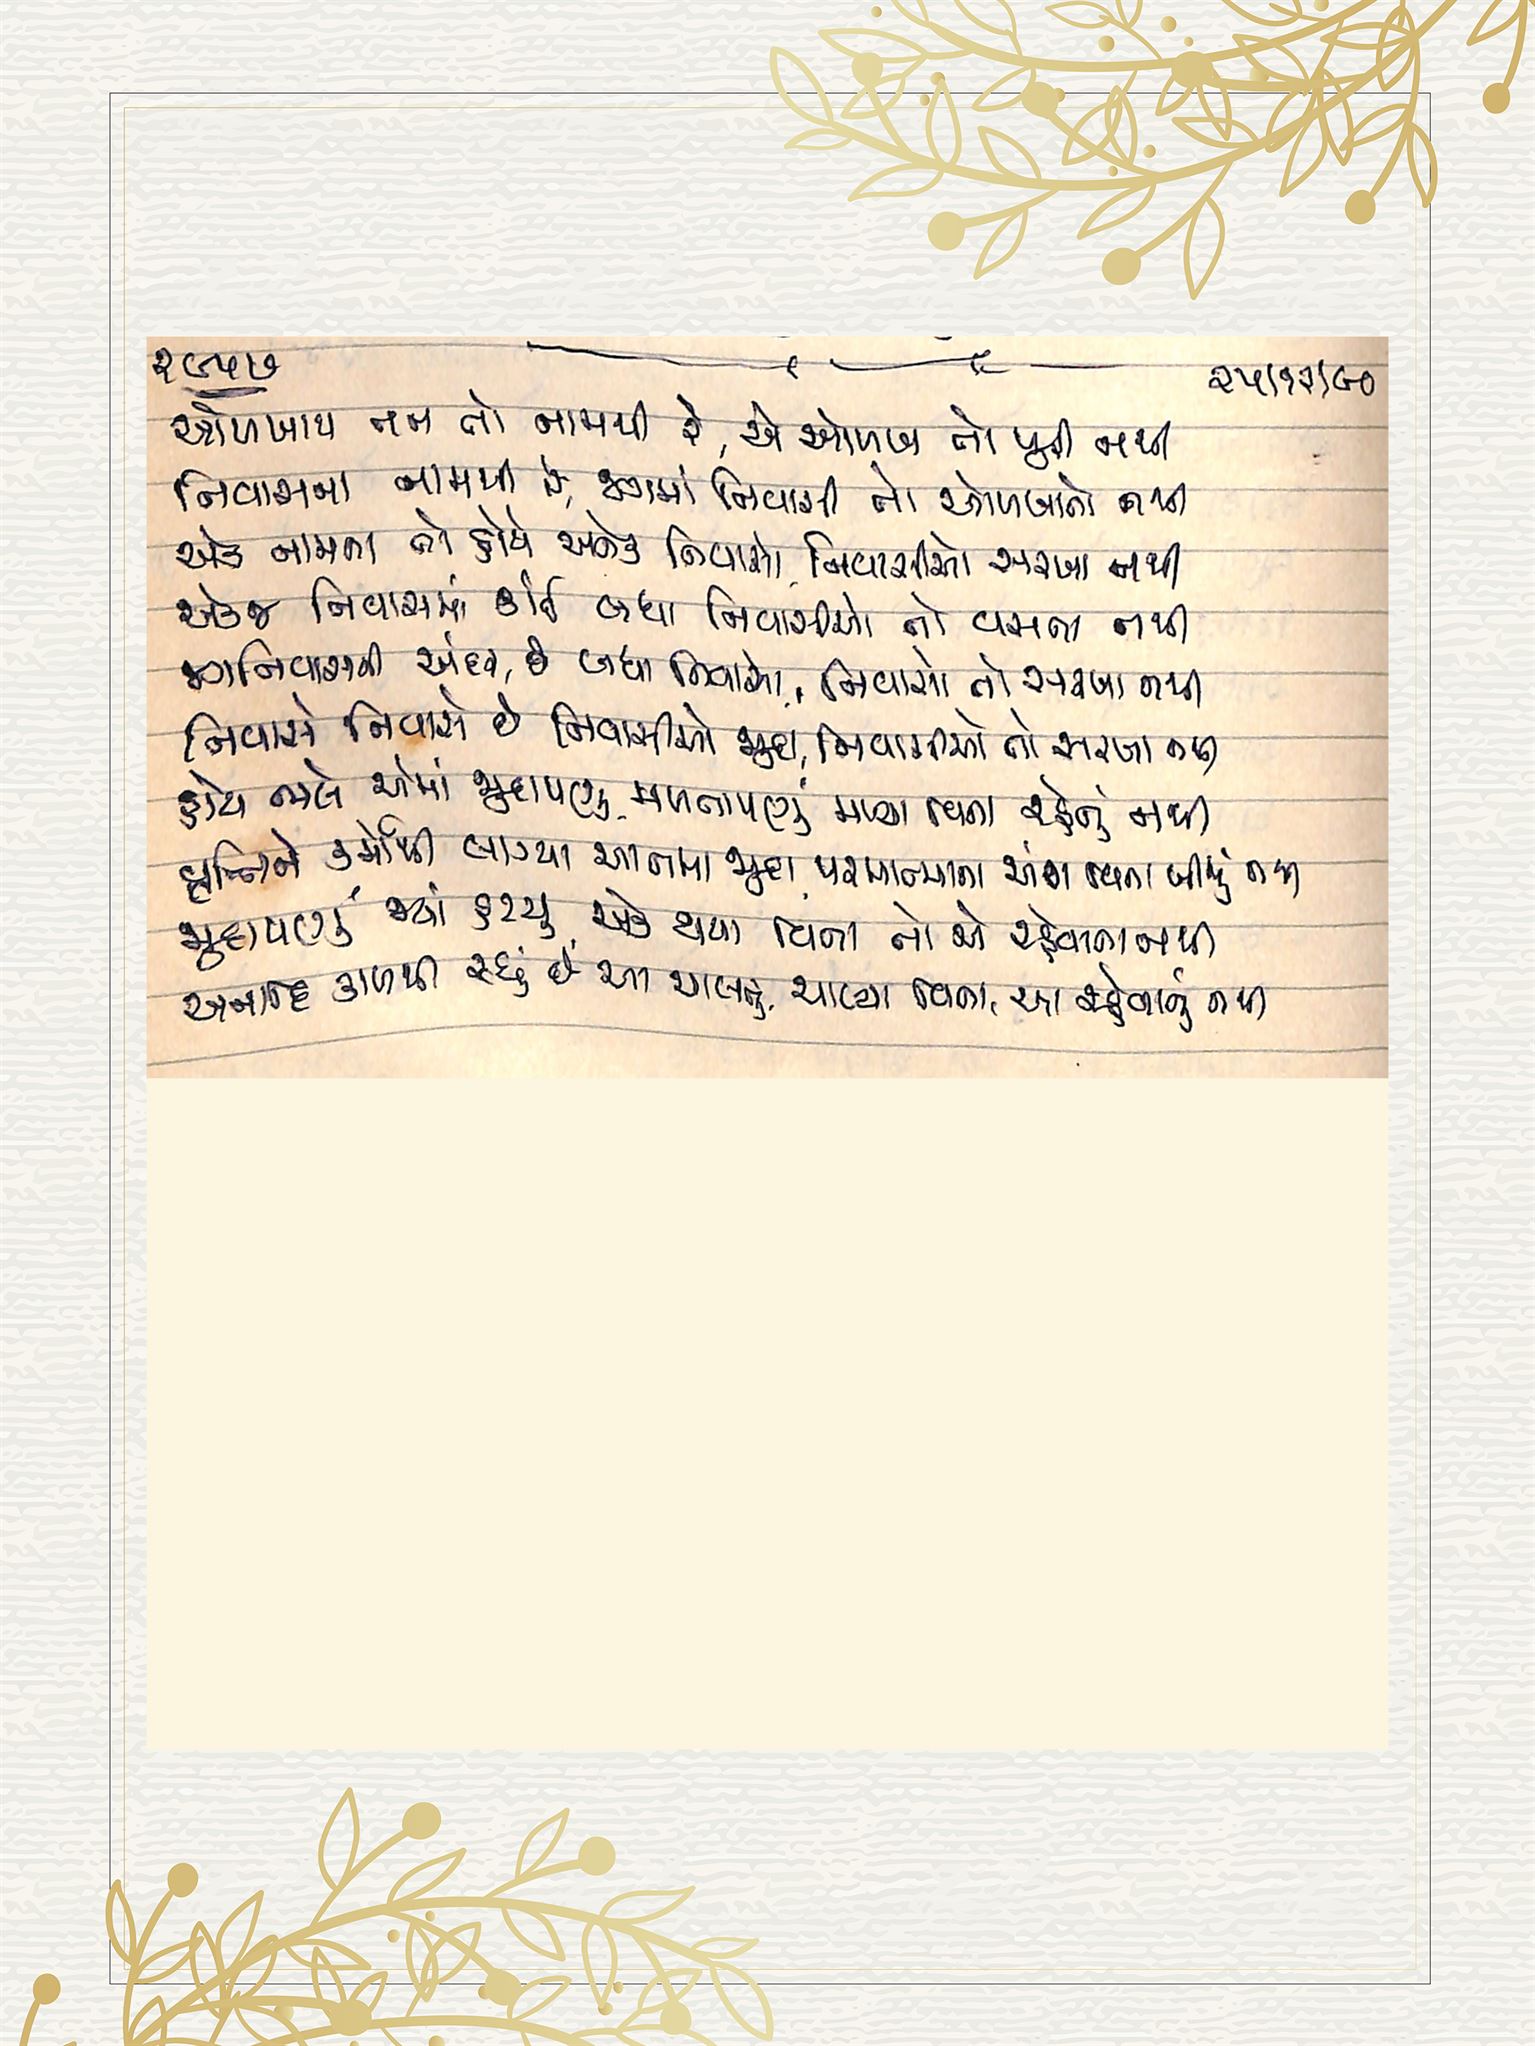 ૨૯૫૭
૨૫/૧૨/૯૦
ઓળખાય જન તો નામથી રે, એ ઓળખ તો પૂરી નથી
નિવાસના નામથી રે, જગમાં નિવાસી તો ઓળખાતો નથી
એક નામના તો હોયે અનેક નિવાસો, નિવાસીઓ સરખા નથી
એકજ નિવાસમાં કાંઈ બધા નિવાસીઓ તો વસતા નથી
જગનિવાસની અંદર, છે બધા નિવાસો, નિવાસો તો સરખા નથી
નિવાસે નિવાસે છે નિવાસીઓ જુદા, નિવાસીઓ તો સરખા નથી
હોય ભલે એમાં જુદાપણું, મળતાપણું મળ્યા વિના રહેતું નથી
વૃત્તિને કર્મોથી લાગ્યા આતમા જુદા, પરમાત્માના અંશ વિના બીજું નથી
જુદાપણું જ્યાં હટયુ, એક થયા વિના તો એ રહેવાના નથી
અનાદિ કાળથી રહ્યું છે આ ચાલતું, ચાલ્યા વિના, આ રહેવાનું નથી